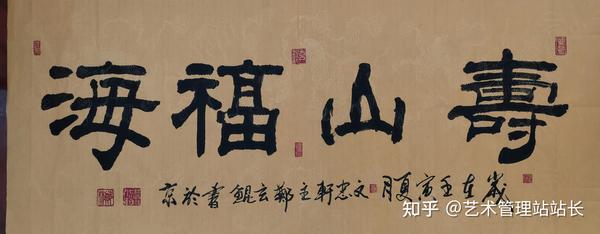 壽山福海
歲在壬寅夏月文忠軒主鄭玄鯤書於京
知乎 @艺术管理站站长